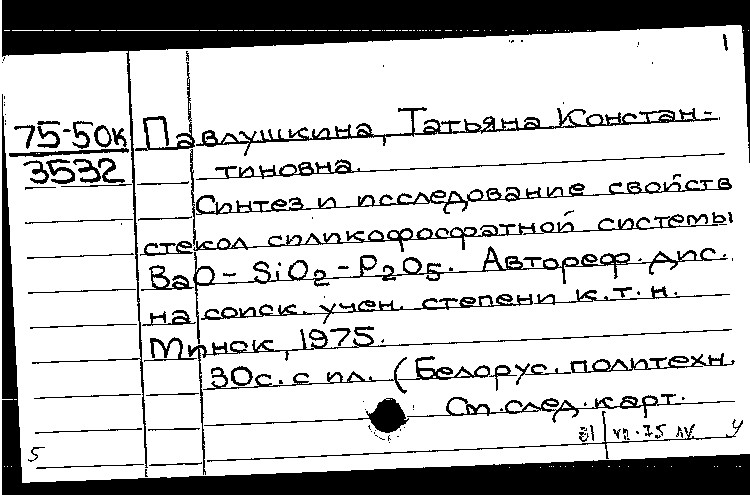 1
75-50к Павлушкина, Татьяна Констан-
3532 тиновна.
Синтез и исследование свойств
стекол силикофосфатной системы
BaO - SiO2 - P2O5. Автореф. дис.
на соиск. учен. степени к.т.н.
Минск, 1975.
30с. с ил. (Белорус. политехн.
См. след. карт.
5